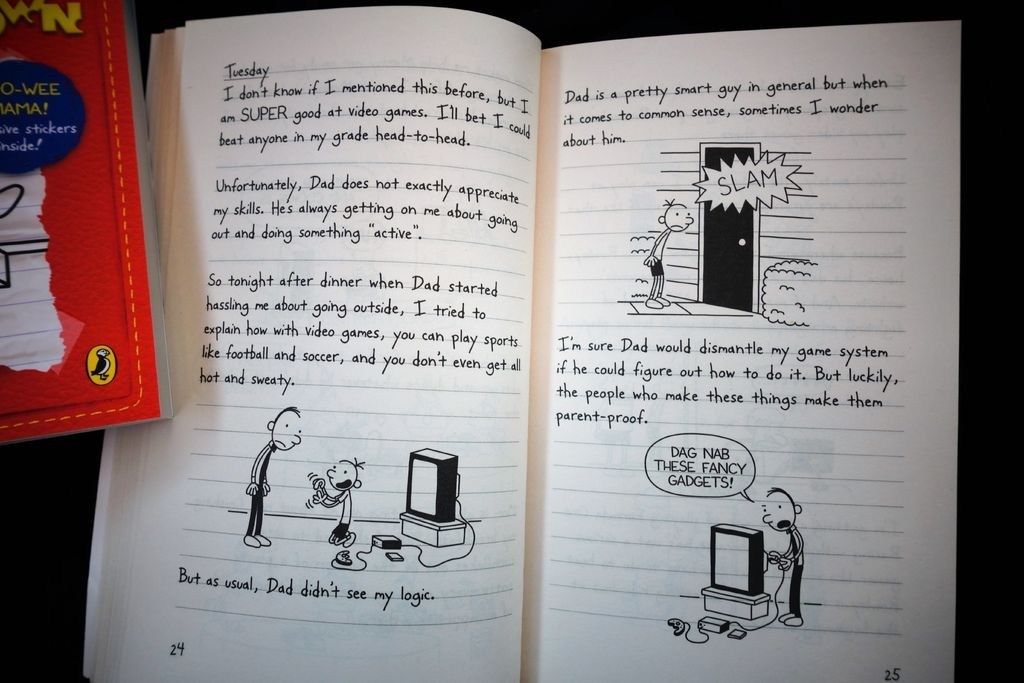 WN
O-WEE
AMA!
sive stickers
inside!
Tuesday
I don't know if I mentioned this before, but I
am SUPER good at video games. I'll bet I could
beat anyone in my grade head-to-head.
Unfortunately, Dad does not exactly appreciate
my skills. He's always getting on me about going
out and doing something "active".
So tonight after dinner when Dad started
hassling me about going outside, I tried to
explain how with video games, you can play sports
like football and soccer, and you don't even get all
hot and sweaty.
But as usual, Dad didn't see my logic.
24
Dad is a pretty smart guy in general but when
it comes to common sense, sometimes I wonder
about him.
SLAM
I'm sure Dad would dismantle my game system
if he could figure out how to do it. But luckily,
the people who make these things make them
parent-proof.
DAG NAB
THESE FANCY
GADGETS!
25